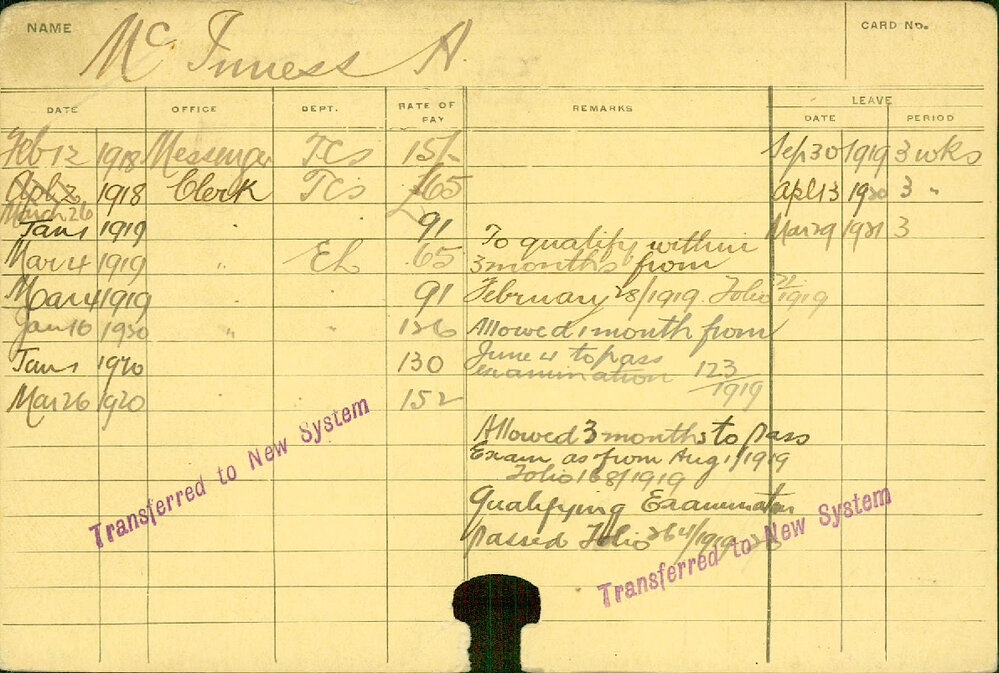 NAME Mc Inness A. CARD No.
DATE OFFICE DEPT. RATE OF PAY REMARKS LEAVE
DATE PERIOD
Feb 12 1918 Messenger TCs 15/- Sep 30 1919 3 wks
1918 Clerk TCs £65 Apl 13 1920 3 "
March 26
Jan 1 1919 " 91 Mar 29 1921 3
To qualify within
Mar 4 1919 " EL 65 3 months from
Mar 4 1919 " " 91 February 28/1919. Folio /1919
Jan 16 1920 " " 126 Allowed 1 month from
Jan 1 1920 130 June 4 to pass
examination 123/1919
Mar 26 1920 152
Allowed 3 months to pass
Exam as from Aug 1/1919
Folio 168/1919
Qualifying Examination
passed Folio 264/1919
Transferred to New System
Transferred to New System